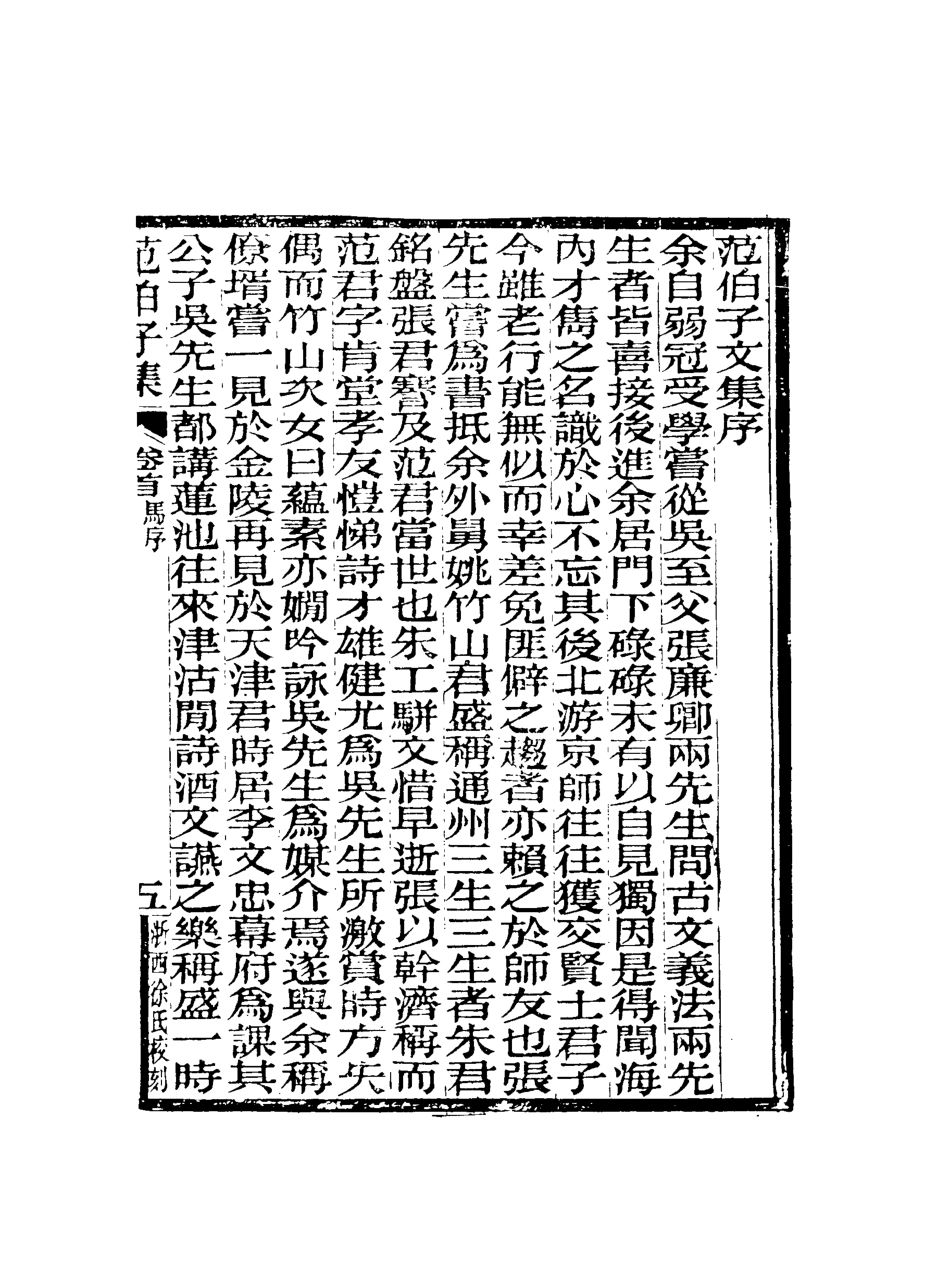 范伯子文集序
余自弱冠受學嘗從吳至父張廉卿兩先生問古文義法兩先
生者皆喜接後進余居門下碌碌未有以自見獨因是得聞海
內才雋之名識於心不忘其後北游京師往往獲交賢士君子
今雖老行能無似而幸差免匪僻之趨者亦賴之於師友也張
先生嘗爲書抵余外舅姚竹山君盛稱通州三生三生者朱君
銘盤張君謇及范君當世也朱工駢文惜早逝張以幹濟稱而
范君字肯堂孝友愷悌詩才雄健尤爲吳先生所激賞時方失
偶而竹山次女曰蘊素亦嫺吟詠吳先生爲媒介焉遂與余稱
僚壻嘗一見於金陵再見於天津君時居李文忠幕府爲課其
公子吳先生都講蓮池往來津沽閒詩酒文讌之樂稱盛一時
范伯子集
卷首馬序
五
浙西徐氏校刻